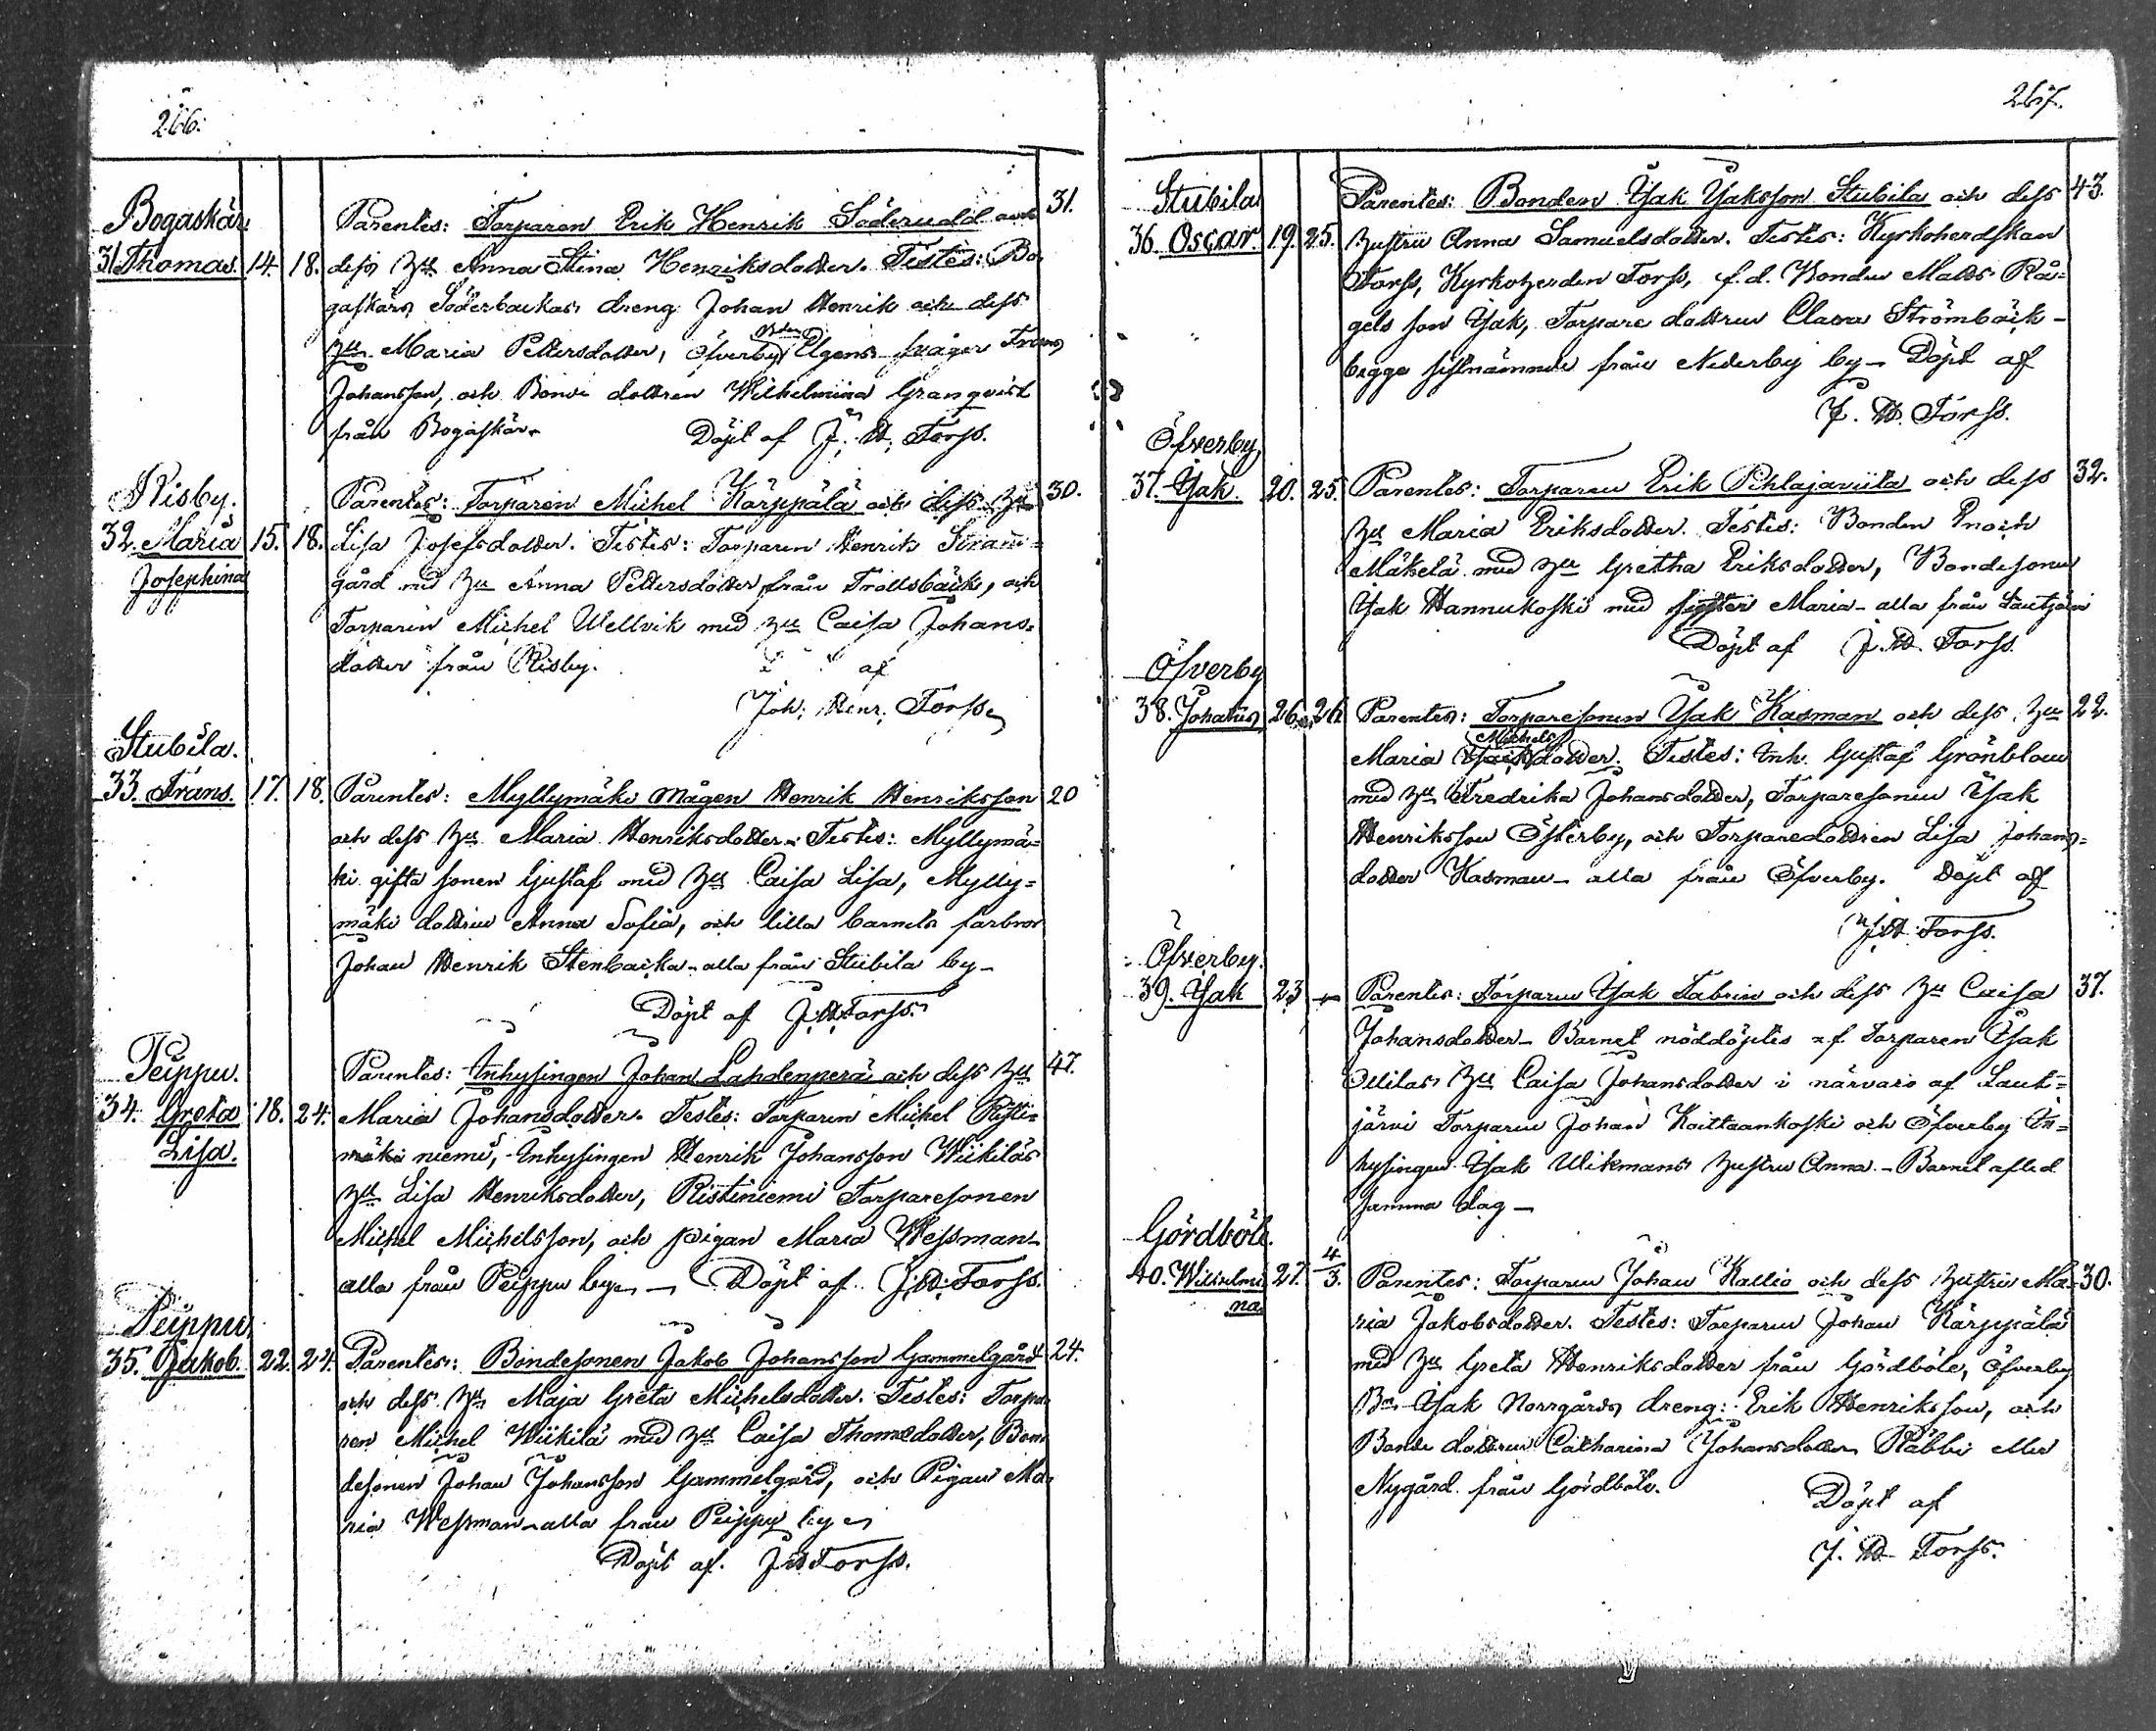 266.
Bogaskär
31. Thomas. 14. 18.
Parentes: Torparen Erik Henrik Söderudd och 31.
dess Hu Anna Stina Henriksdotter. Testes: Bo
gaskärs Söderbackas dreng Johan Henrik och dess
Hu Maria Pettersdotter, Öfverby Bden Elgens swåger Frans
Johansson, och Bonde dottren Wilhelmina Granqvist
från Bogaskär. Döpt af J. H. Forss.
Risby.
32. Maria Josephina 15. 18.
Parentes: Torparen Michel Kärppälä och dess Hu 30.
Lisa Josefsdotter. Testes: Torparen Henrik
gård med Hu Anna Pettersdotter från Trollsbäck, och
Torparen Michel Wellvik med Hu Caisa Johans=
dotter från Risby. " " af
Joh. Henr. Forss
Stubila.
33. Frans. 17. 18.
Parentes: Myllymäki mågen Henrik Henriksson 20
och dess Hu Maria Henriksdotter. Testes: Myllymä=
ki gifta sonen Gustaf med Hu Caisa Lisa, Mylly=
mäki dottren Anna Sofia, och lilla barnets farbror
Johan Henrik Stenbacka - alla från Stubila by -
Döpt af J. H. Forss.
Peippu.
34. Greta Lisa. 18. 24.
Parentes: Inhysingen Johan Lahdenperä och dess Hu 47.
Maria Johansdotter. Testes: Torparen Michel Risti=
mäki niemi, Inhysingen Henrik Johansson Wiikiläs
Hu Lisa Henriksdotter, Ristiniemi Torparesonen
Michel Michelsson, och pigan Maria Wessman -
alla från Peippu by. — Döpt af J. H. Forss.
Peippu
35. Jakob. 22. 24.
Parentes: Bondesonen Jakob Johansson Gammelgård 24.
och dess Hu Maja Greta Michelsdotter. Testes: Torpa
ren Michel Wiikilä med Hu Caisa Thomedotter, Bon
desonen Johan Johansson Gammelgård, och Pigan Ma
ria Wessman - alla från Peippu by
Döpt af. J. H. Forss.
267.
Stubila
36. Oscar. 19. 25.
Parentes: Bonden Isak Isaksson Stubila och dess 43.
hustru Anna Samuelsdotter. Testes: Kyrkoherdskan
Forss, Kyrkoherden Forss, f.d. Bonden Matts Rå=
gels son Isak, Torpare dottren Clara Strömbäck -
begge sistnämnde från Nederby by - Döpt af
J. H. Forss.
Öfverby
37. Isak. 20. 25.
Parentes: Torparen Erik Pihlajaviita och dess 32.
Hu Maria Eriksdotter. Testes: Bonden Enoch
Mäkelä med Hu Gretha Eriksdotter, Bondesonen
Isak Hannukoski med syster Maria - alla från Lautjärvi
Döpt af J. H. Forss.
Öfverby
38. Johannes 26. 26.
Parentes: Torparesonen Isak Kasman och dess Hu 22.
Maria Michelsdotter. Testes: Inh. Gustaf Grönblom
med Hu Fredrika Johansdotter, Torparesonen Isak
Henriksson Österby, och Torparedottren Lisa Johans=
dotter Kasman - alla från Öfverby. Döpt af
J. H. Forss.
Öfverby.
39. Isak 23 +
Parentes: Torparen Isak Fabrin och dess Hu Caisa 37.
Johansdotter - Barnet nöddöptes af Torparen Isak
Ollilas Hu Caisa Johansdotter i närvaro af Laut=
järvi Torparen Johan Koittaankoski och Öfverby In=
hysingen Isak Wikmans hustru Anna. - Barnet afled
samma dag —
Gördböle.
40. Wilhelmina 27. 4/3.
Parentes: Torparen Johan Kallio och dess hustru Ma= 30.
ria Jakobsdotter. Testes: Torparen Johan Kärppälä
med Hu Greta Henriksdotter från Gördböle, Öfverby
Bn Isak Norrgårds dreng: Erik Henriksson, och
Bonde dottren Catharina Johansdotter Räbbi eller
Nygård från Gördböle. Döpt af
J. H. Forss.